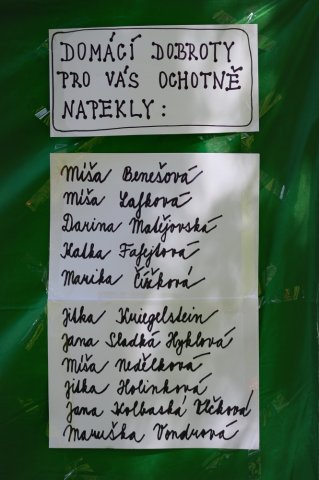 DOMÁCÍ DOBROTY
PRO VÁS OCHOTNĚ
NAPEKLY:
Míša Benešová
Míša Lafková
Darina Matějovská
Katka Fafejtová
Marika Čížková
Jitka Kriegelstein
Jana Sladká Hyklová
Míša Nedělková
Jitka Holinková
Jana Kolbaská Vlčková
Maruška Vondrová